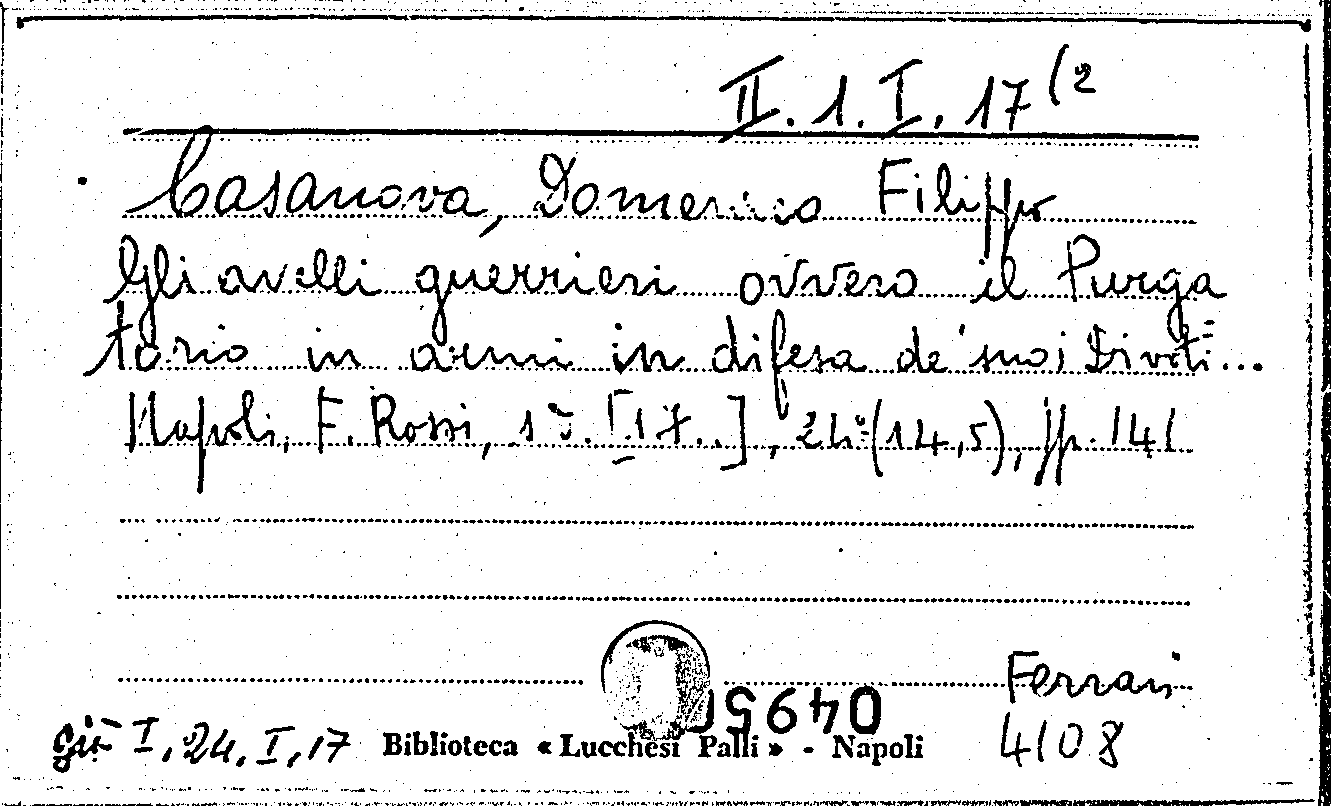 II. 1. I. 17 (2
Casanova, Domenico Filippo
Gli avelli guerrieri ovvero il Purga
torio in armi in difesa de' suoi Divoti...
Napoli, F. Rossi, 17. [17..], 24° (14,5), pp. 141
Ferrari
04950
già I, 24. I, 17 Biblioteca « Lucchesi Palli » - Napoli 4108